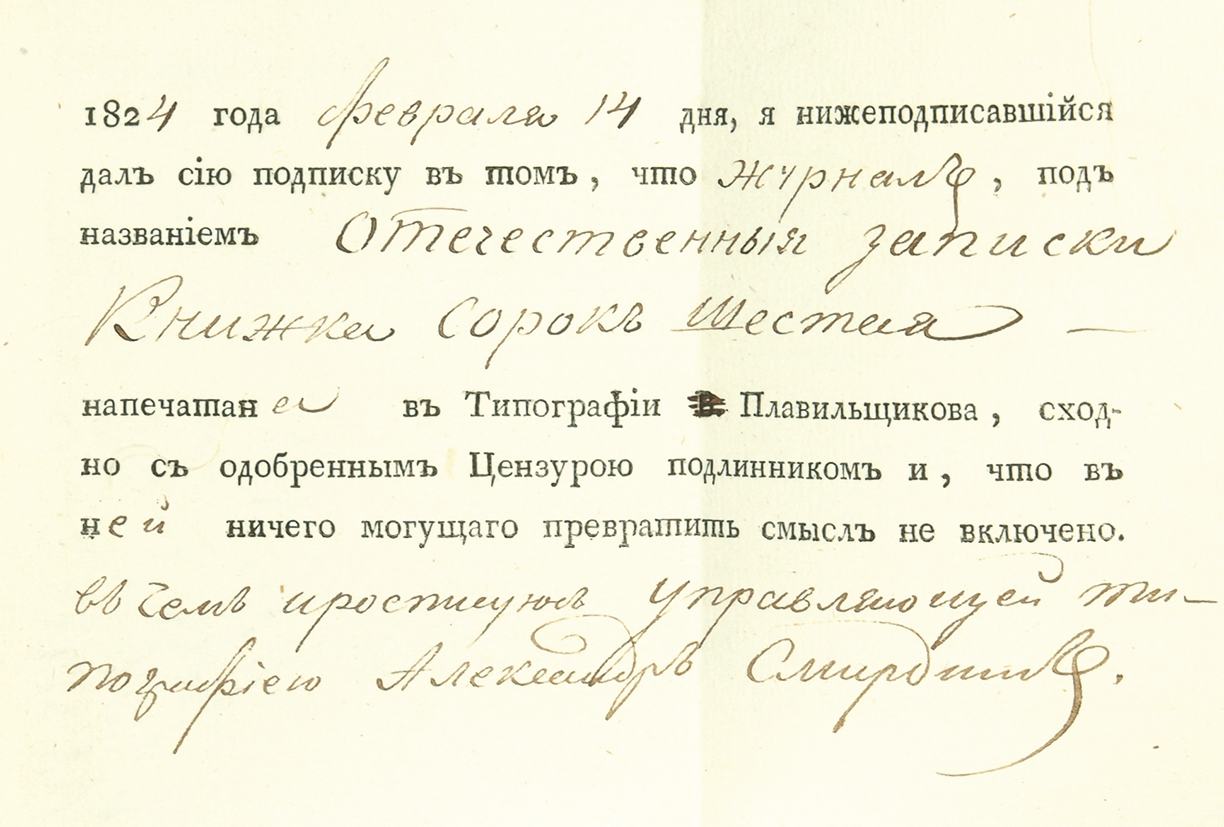 1824 года февраля 14 дня, я нижеподписавшійся
далъ сію подписку въ томъ, что журналъ, подъ
названіемъ Отечественныя записки
Книжка сорокъ шестая —
напечатана въ Типографіи Плавильщикова, сход-
но съ одобреннымъ Цензурою подлинникомъ и, что въ
ней ничего могущаго превратить смыслъ не включено.
въ чемъ и росписуюсь Управляющей ти-
пографіею Александръ Смирдинъ.